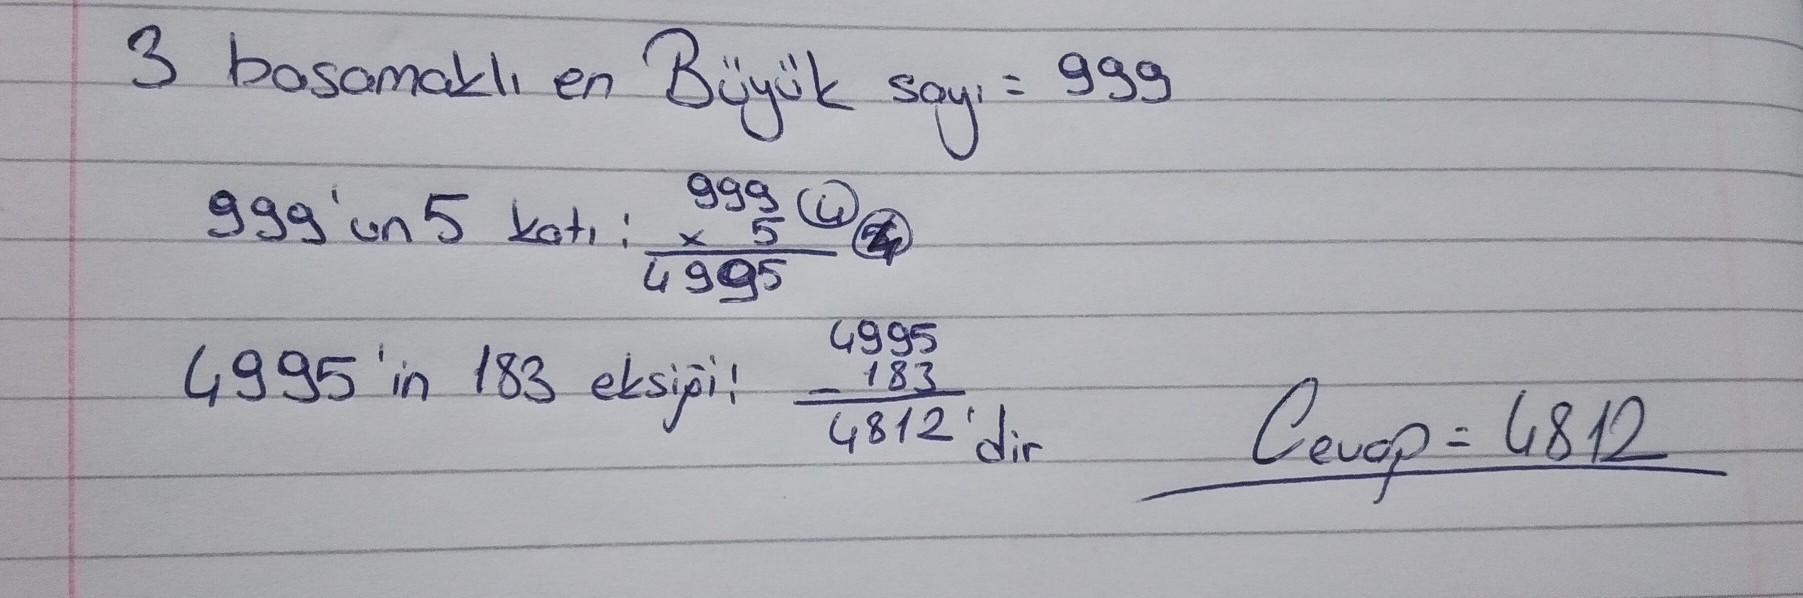 3 basamaklı en Büyük sayı = 999
999'un 5 katı: 999 4
x 5 4
4995
4995'in 183 eksiği: 4995
- 183
4812'dir
Cevap = 4812